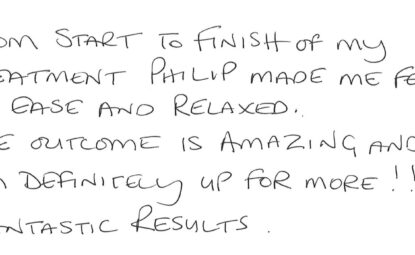 OM START TO FINISH OF MY
EATMENT PHILIP MADE ME FE
EASE AND RELAXED.
E OUTCOME IS AMAZING AND
DEFINITELY UP FOR MORE !!
NTASTIC RESULTS.